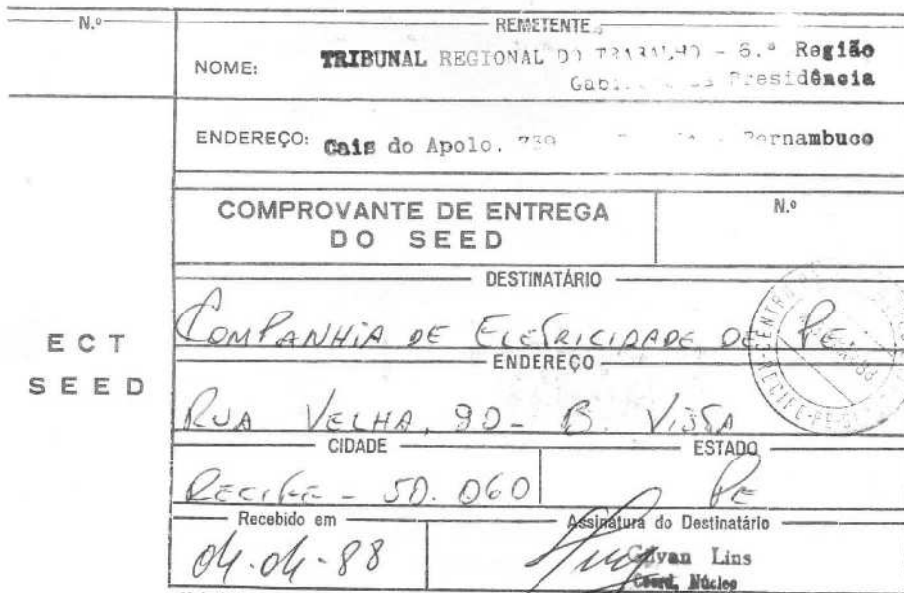 N.º
REMETENTE
NOME: TRIBUNAL REGIONAL DO TRABALHO - 6.ª Região
Presidência
ENDEREÇO: Cais do Apolo, 739 Pernambuco
COMPROVANTE DE ENTREGA
DO SEED
N.º
DESTINATÁRIO
COMPANHIA DE ELETRICIDADE DE PE
ENDEREÇO
RUA VELHA, 90 - B. VISTA
CIDADE
ESTADO
RECIFE - 50.060
PE
ECT
SEED
Recebido em
Assinatura do Destinatário
04-04-88
Lins
Coord. Núcleo
RECIFE-PE